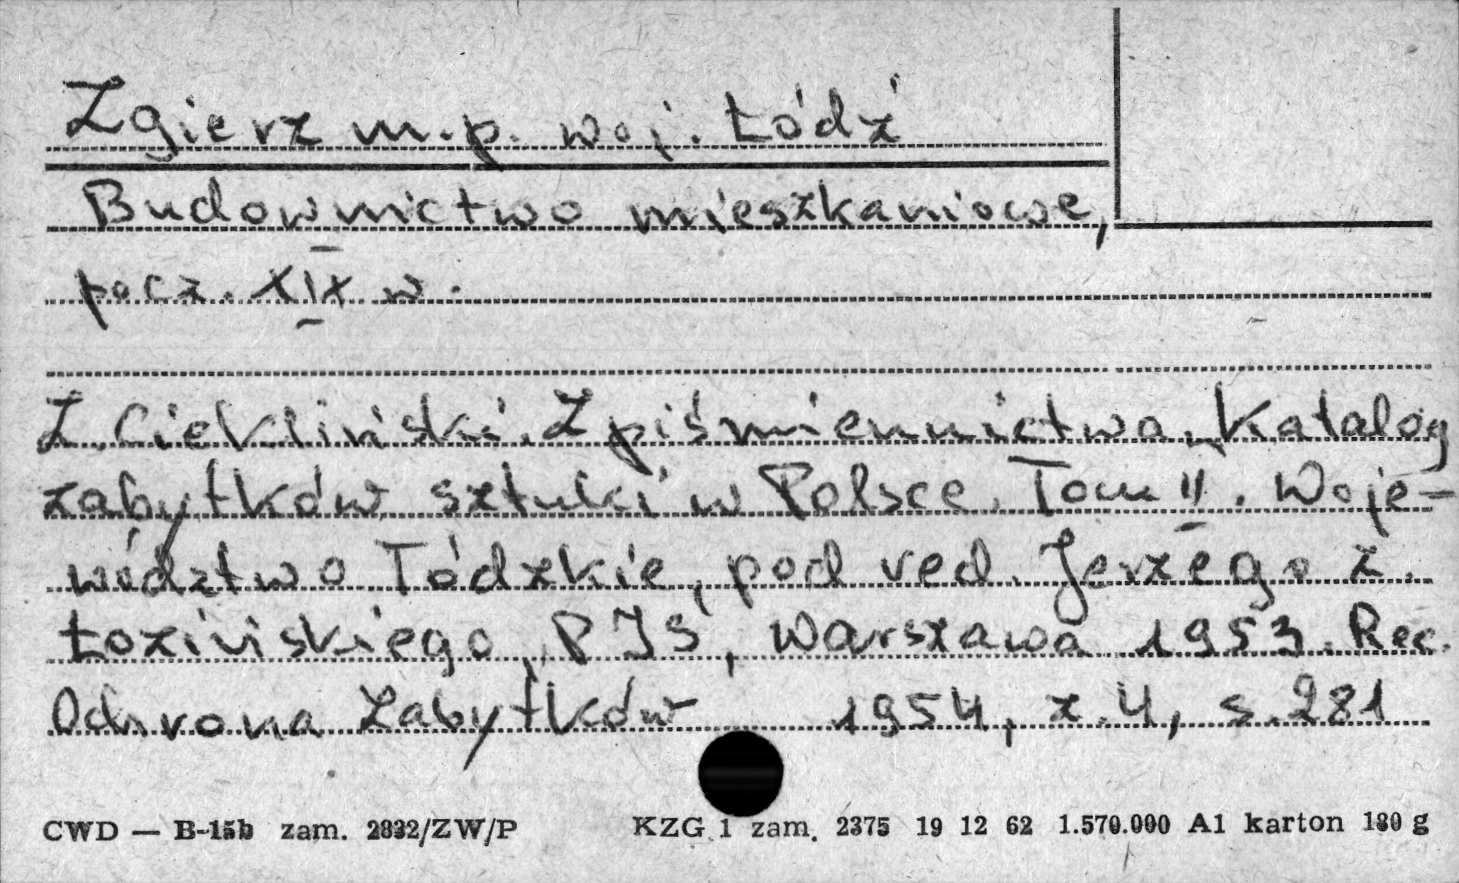 Zgierz m.p. woj. Łódź
Budownictwo mieszkaniowe,
pocz. XIX w.
Z. Ciekliński. Z piśmiennictwa. Katalog
zabytków sztuki w Polsce. Tom II. Woje-
wództwo Łódzkie, pod red. Jerzego Z.
Łozińskiego, PIS, Warszawa 1953. Rec.
Ochrona Zabytków 1954, z.4, s.281
CWD — B-15b zam. 2832/ZW/P KZG 1 zam. 2375 19 12 62 1.570.000 A1 karton 180 g